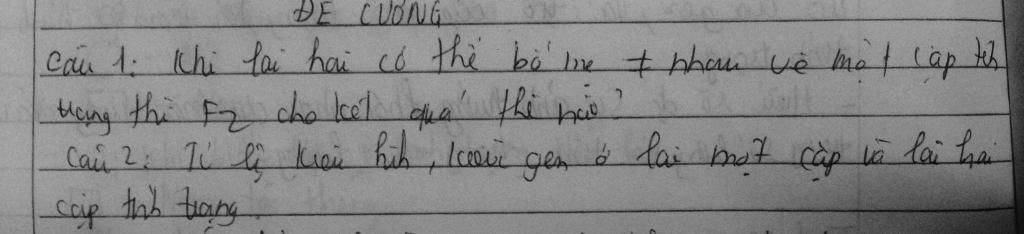 ĐỀ CƯƠNG
Câu 1: Khi lai hai cơ thể bố mẹ ≠ nhau về một cặp th
trạng thì F2 cho kết quả thế nào?
Câu 2: Tỉ lệ kiểu hình, kiểu gen ở lai một cặp và lai hai
cặp tính trạng